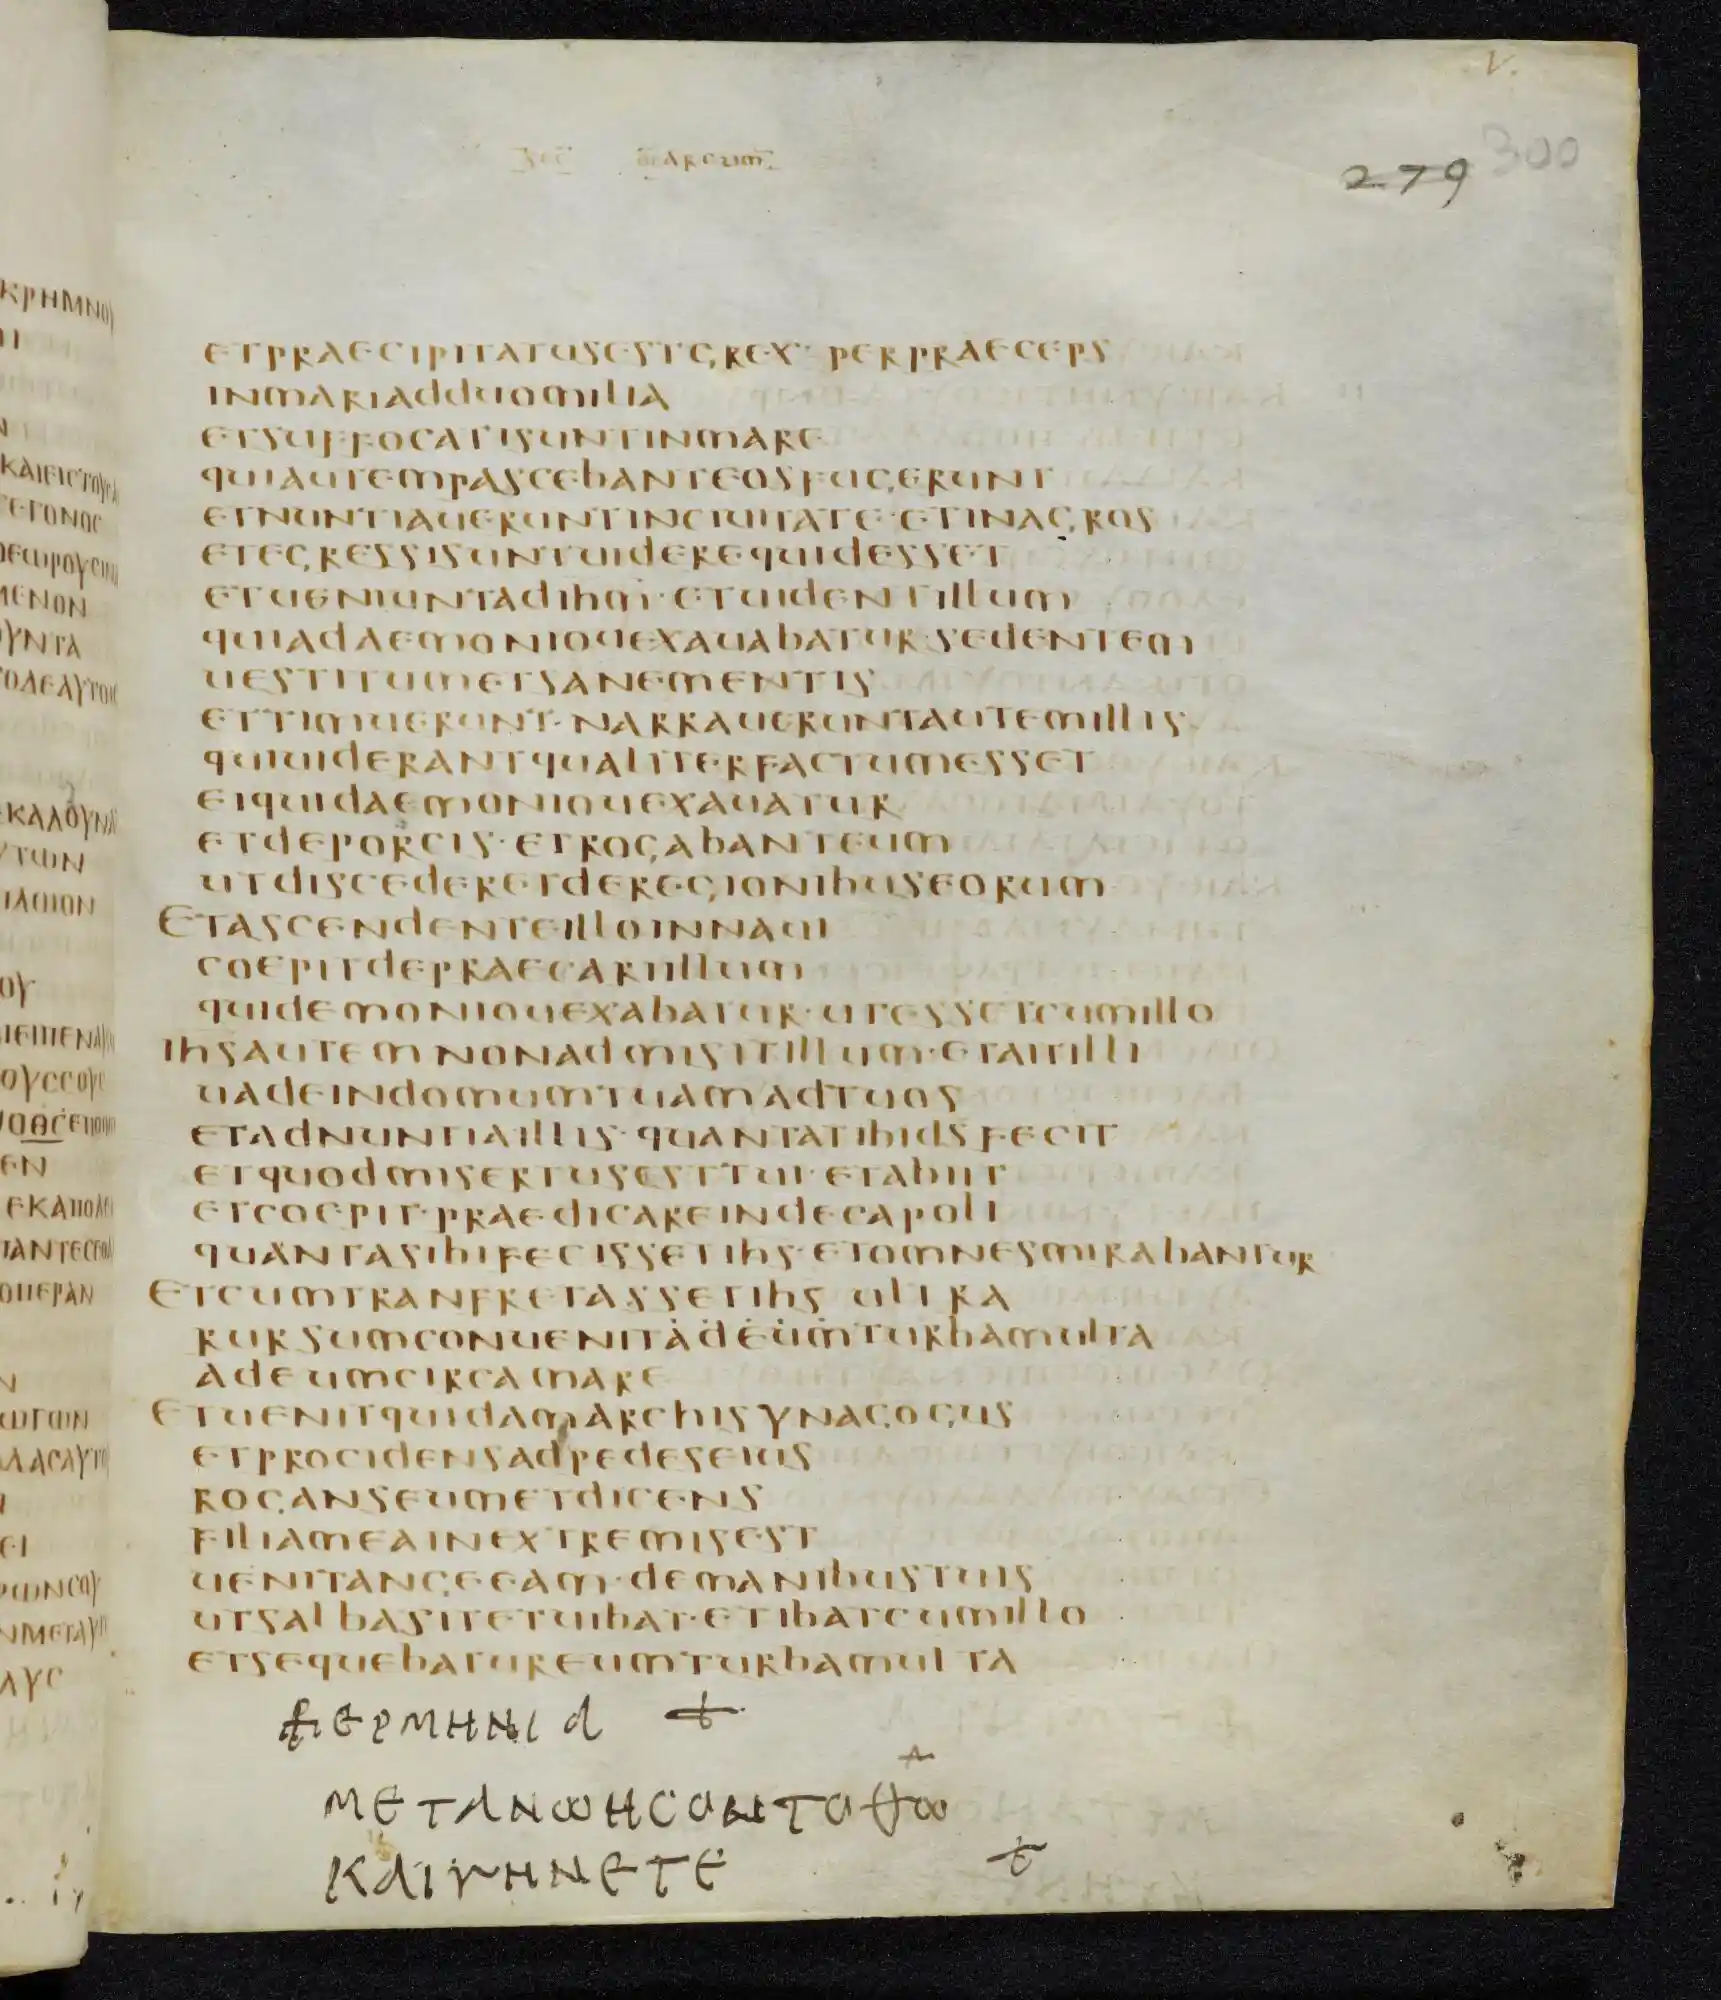 V.
sec marcum
279 300
etpraecipitatusestgrex· perpraeceps
inmariadduomilia
etsuffocatisuntinmare
quiautempascebanteosfugerunt
etnuntiaueruntinciuitate·etinagros
etegressisuntuiderequidesset
etueniuntadihm·etuidentillum
quiadaemoniouexauabatur·sedentem
uestitumetsanementis
ettimuerunt·narraueruntautemillis
quiuiderantqualiterfactumesset
eiquidaemoniouexauatur
etdeporcis·etrogabanteum
utdiscedereetderegionibuseorum
Etascendenteilloinnaui
coepitdepraecariillum
quidemoniouexabatur·utessetcumillo
ihsautemnonadmisitillum·etaitilli
uadeindomumtuamadtuos
etadnuntiaillis·quantatibidsfecit
etquodmisertusesttui·etabiit
etcoepit·praedicareindecapoli
quantasibifecissetihs·etomnesmirabantur
Etcumtranfretassetihs ultra
rursumconuenitadeumturbamulta
adeumcircamare
Etuenitquidamarchisynagogus
etprocidensadpedeseius
roganseumetdicens
filiameainextremisest
uenitangeeam·demanibustuis
utsalbasitetuibat·etibatcumillo
etsequebatureumturbamulta
ερμηνια
μετανωησοντοθω
καιγηνετε